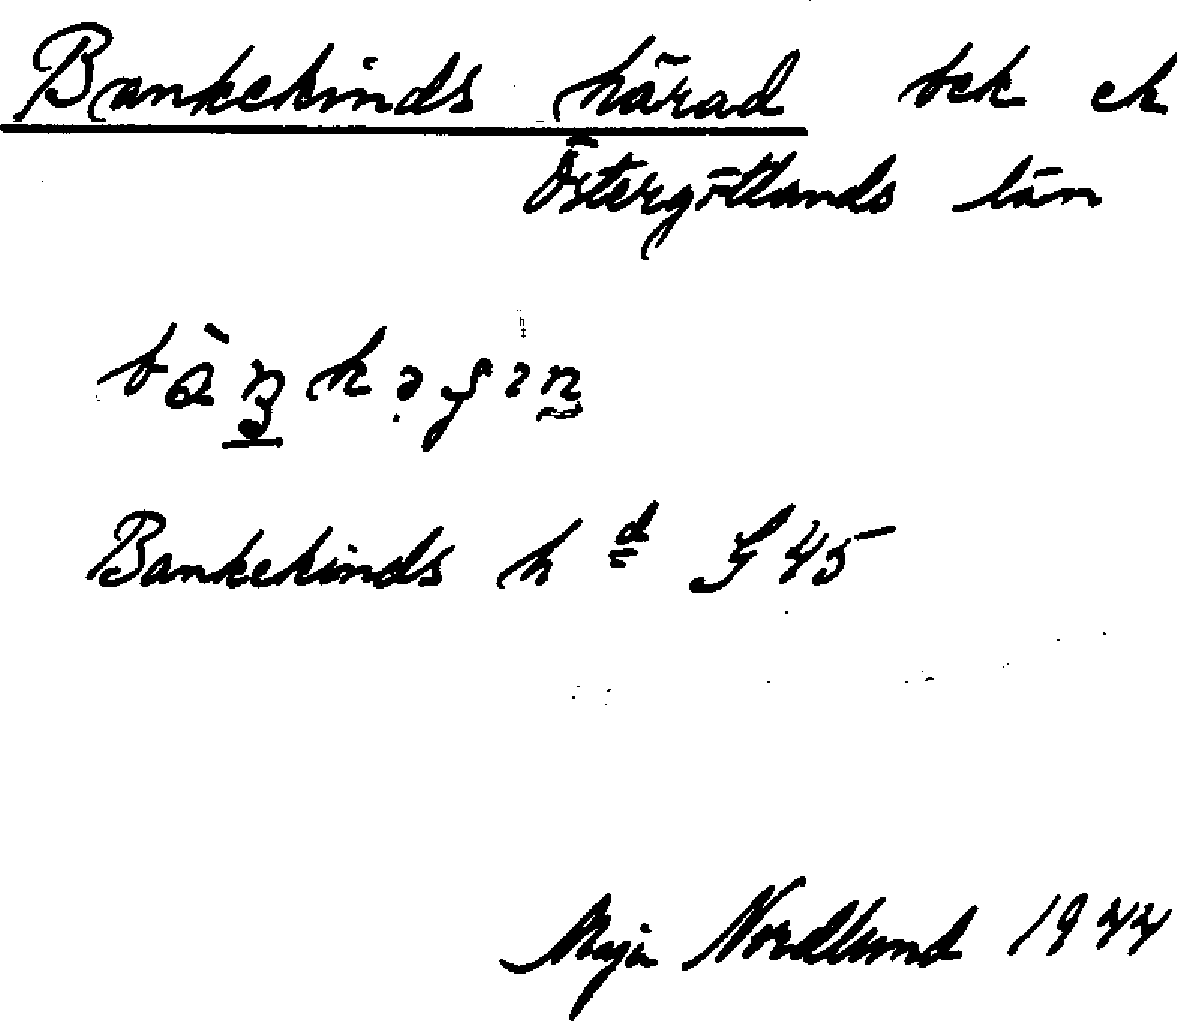 Bankekinds härad bek ek
Östergötlands län
Bankekinds hd J 45
Maja Nordlund 1944